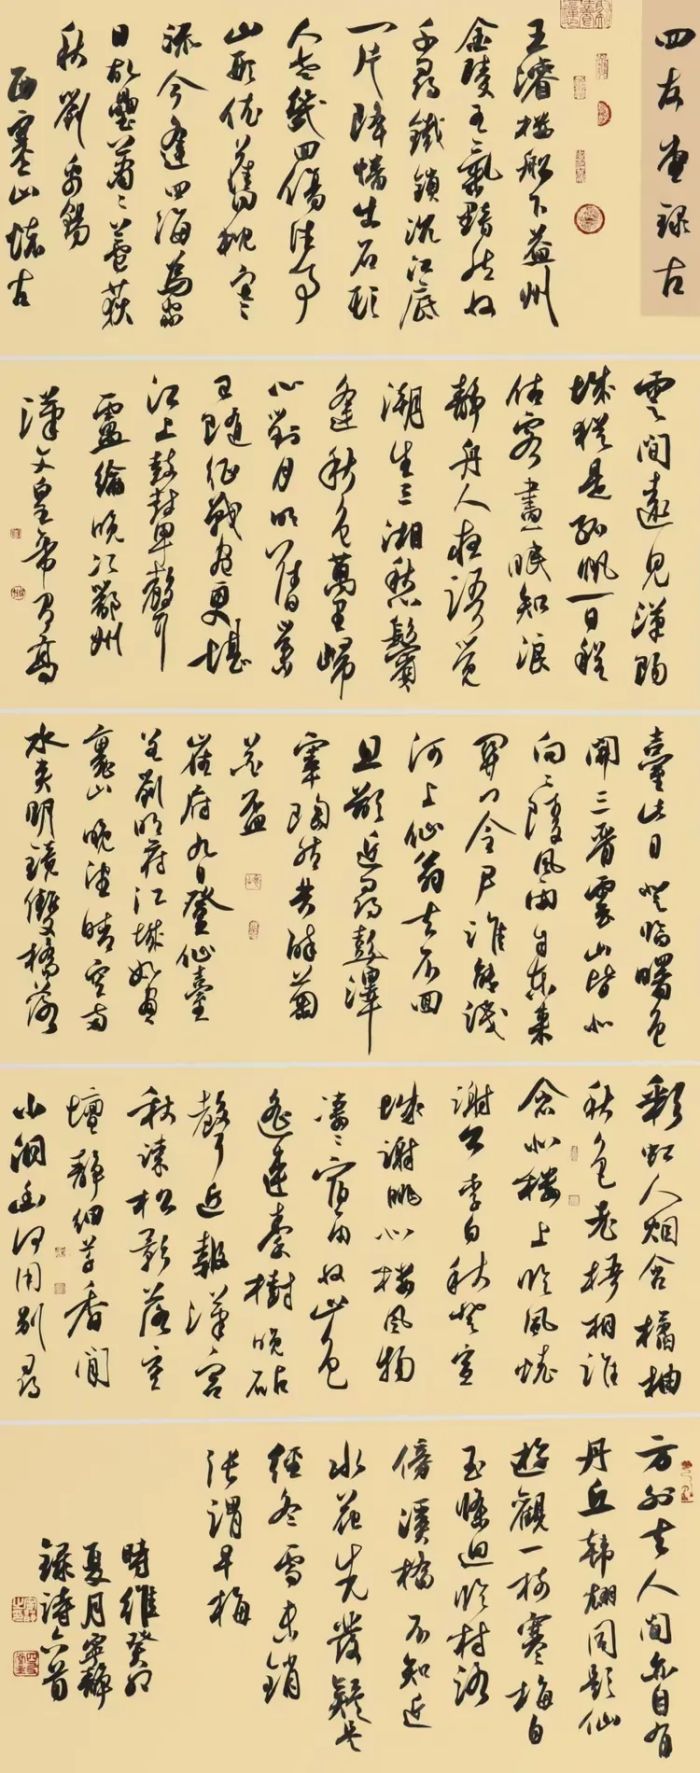 四友堂録古
王濬楼船下益州
金陵王氣黯然收
千尋鐵鎖沉江底
一片降幡出石頭
人世幾回傷往事
山形依舊枕寒
流今逢四海為家
日故壘蕭〻蘆荻
秋劉禹錫
西塞山懷古
雲開遠見漢陽
城猶是孤帆一日程
估客晝眠知浪
靜舟人夜語覺
潮生三湘愁鬢
逢秋色萬里歸
心對月明舊業
已随征戰盡更堪
江上鼓鼙聲
盧綸晚次鄂州
漢文皇帝有高
臺此日登臨曙色
開三晉雲山皆北
向二陵風雨自東來
關門令尹誰能識
河上仙翁去不回
且欲近尋彭澤
宰陶然共醉菊
花盃
崔府九日登仙臺
呈劉明府江城如畫
裏山晚望晴空兩
水夾明鏡雙橋落
彩虹人烟寒橘柚
秋色老梧桐誰
念北樓上臨風懷
謝公李白秋登宣
城謝朓北樓風物
淒〻宿雨收山色
遙連秦樹晚砧
聲近報漢宮
秋疎松影落空
壇靜細草香閒
小洞幽何用別尋
方外去人間亦自有
丹丘韓翃同題仙
遊觀一樹寒梅白
玉條迥臨村路
傍溪橋不知近
水花先發疑是
經冬雪未銷
張謂早梅
時維癸卯
夏月寧靜
録詩六首